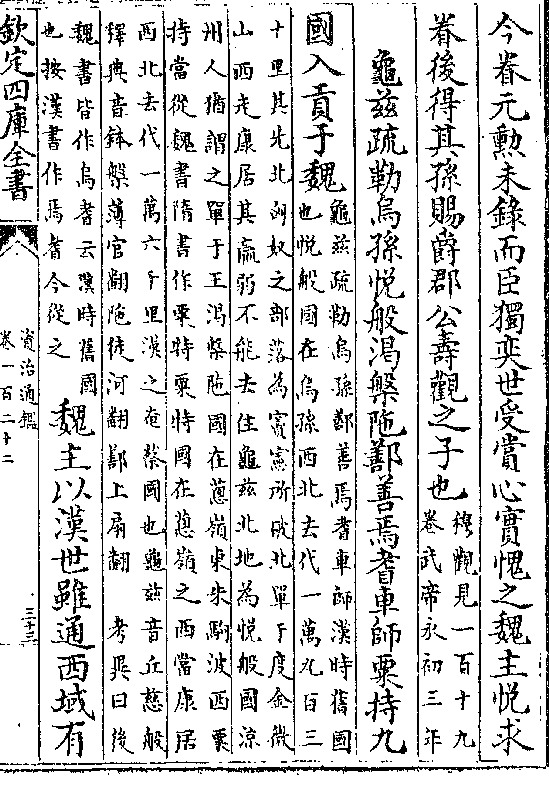 今眷元勲未錄而臣獨奕世受賞心實愧之魏主悅求
眷後得其孫賜爵郡公壽觀之子也
穆觀見一百十九
卷武帝永初三年
龜兹疏勒烏孫悅般渴槃陁鄯善焉耆車師粟持九
國入貢于魏
龜兹疏勒烏孫鄯善焉耆車師漢時舊國
也悅般國在烏孫西北去代一萬九百三
十里其先北匈奴之部落為竇憲所破北單于度金微
山西走康居其羸弱不能去住龜兹北地為悅般國涼
州人猶謂之單于王渴槃陁國在蔥嶺東朱駒波西粟
持當從魏書隋書作粟特粟特國在蔥嶺之西當康居
西北去代一萬六千里漢之奄蔡國也龜兹音丘慈般
釋典音鉢槃薄官翻陁徒河翻鄯上扇翻 考異曰後
魏書皆作烏耆云漢時舊國
也按漢書作焉耆今從之
魏主以漢世雖通西域有
欽定四庫全書
資治通鑑
卷一百二十二
三十三